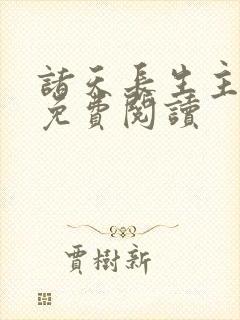 諸天長生主
免費閱讀
賈樹新